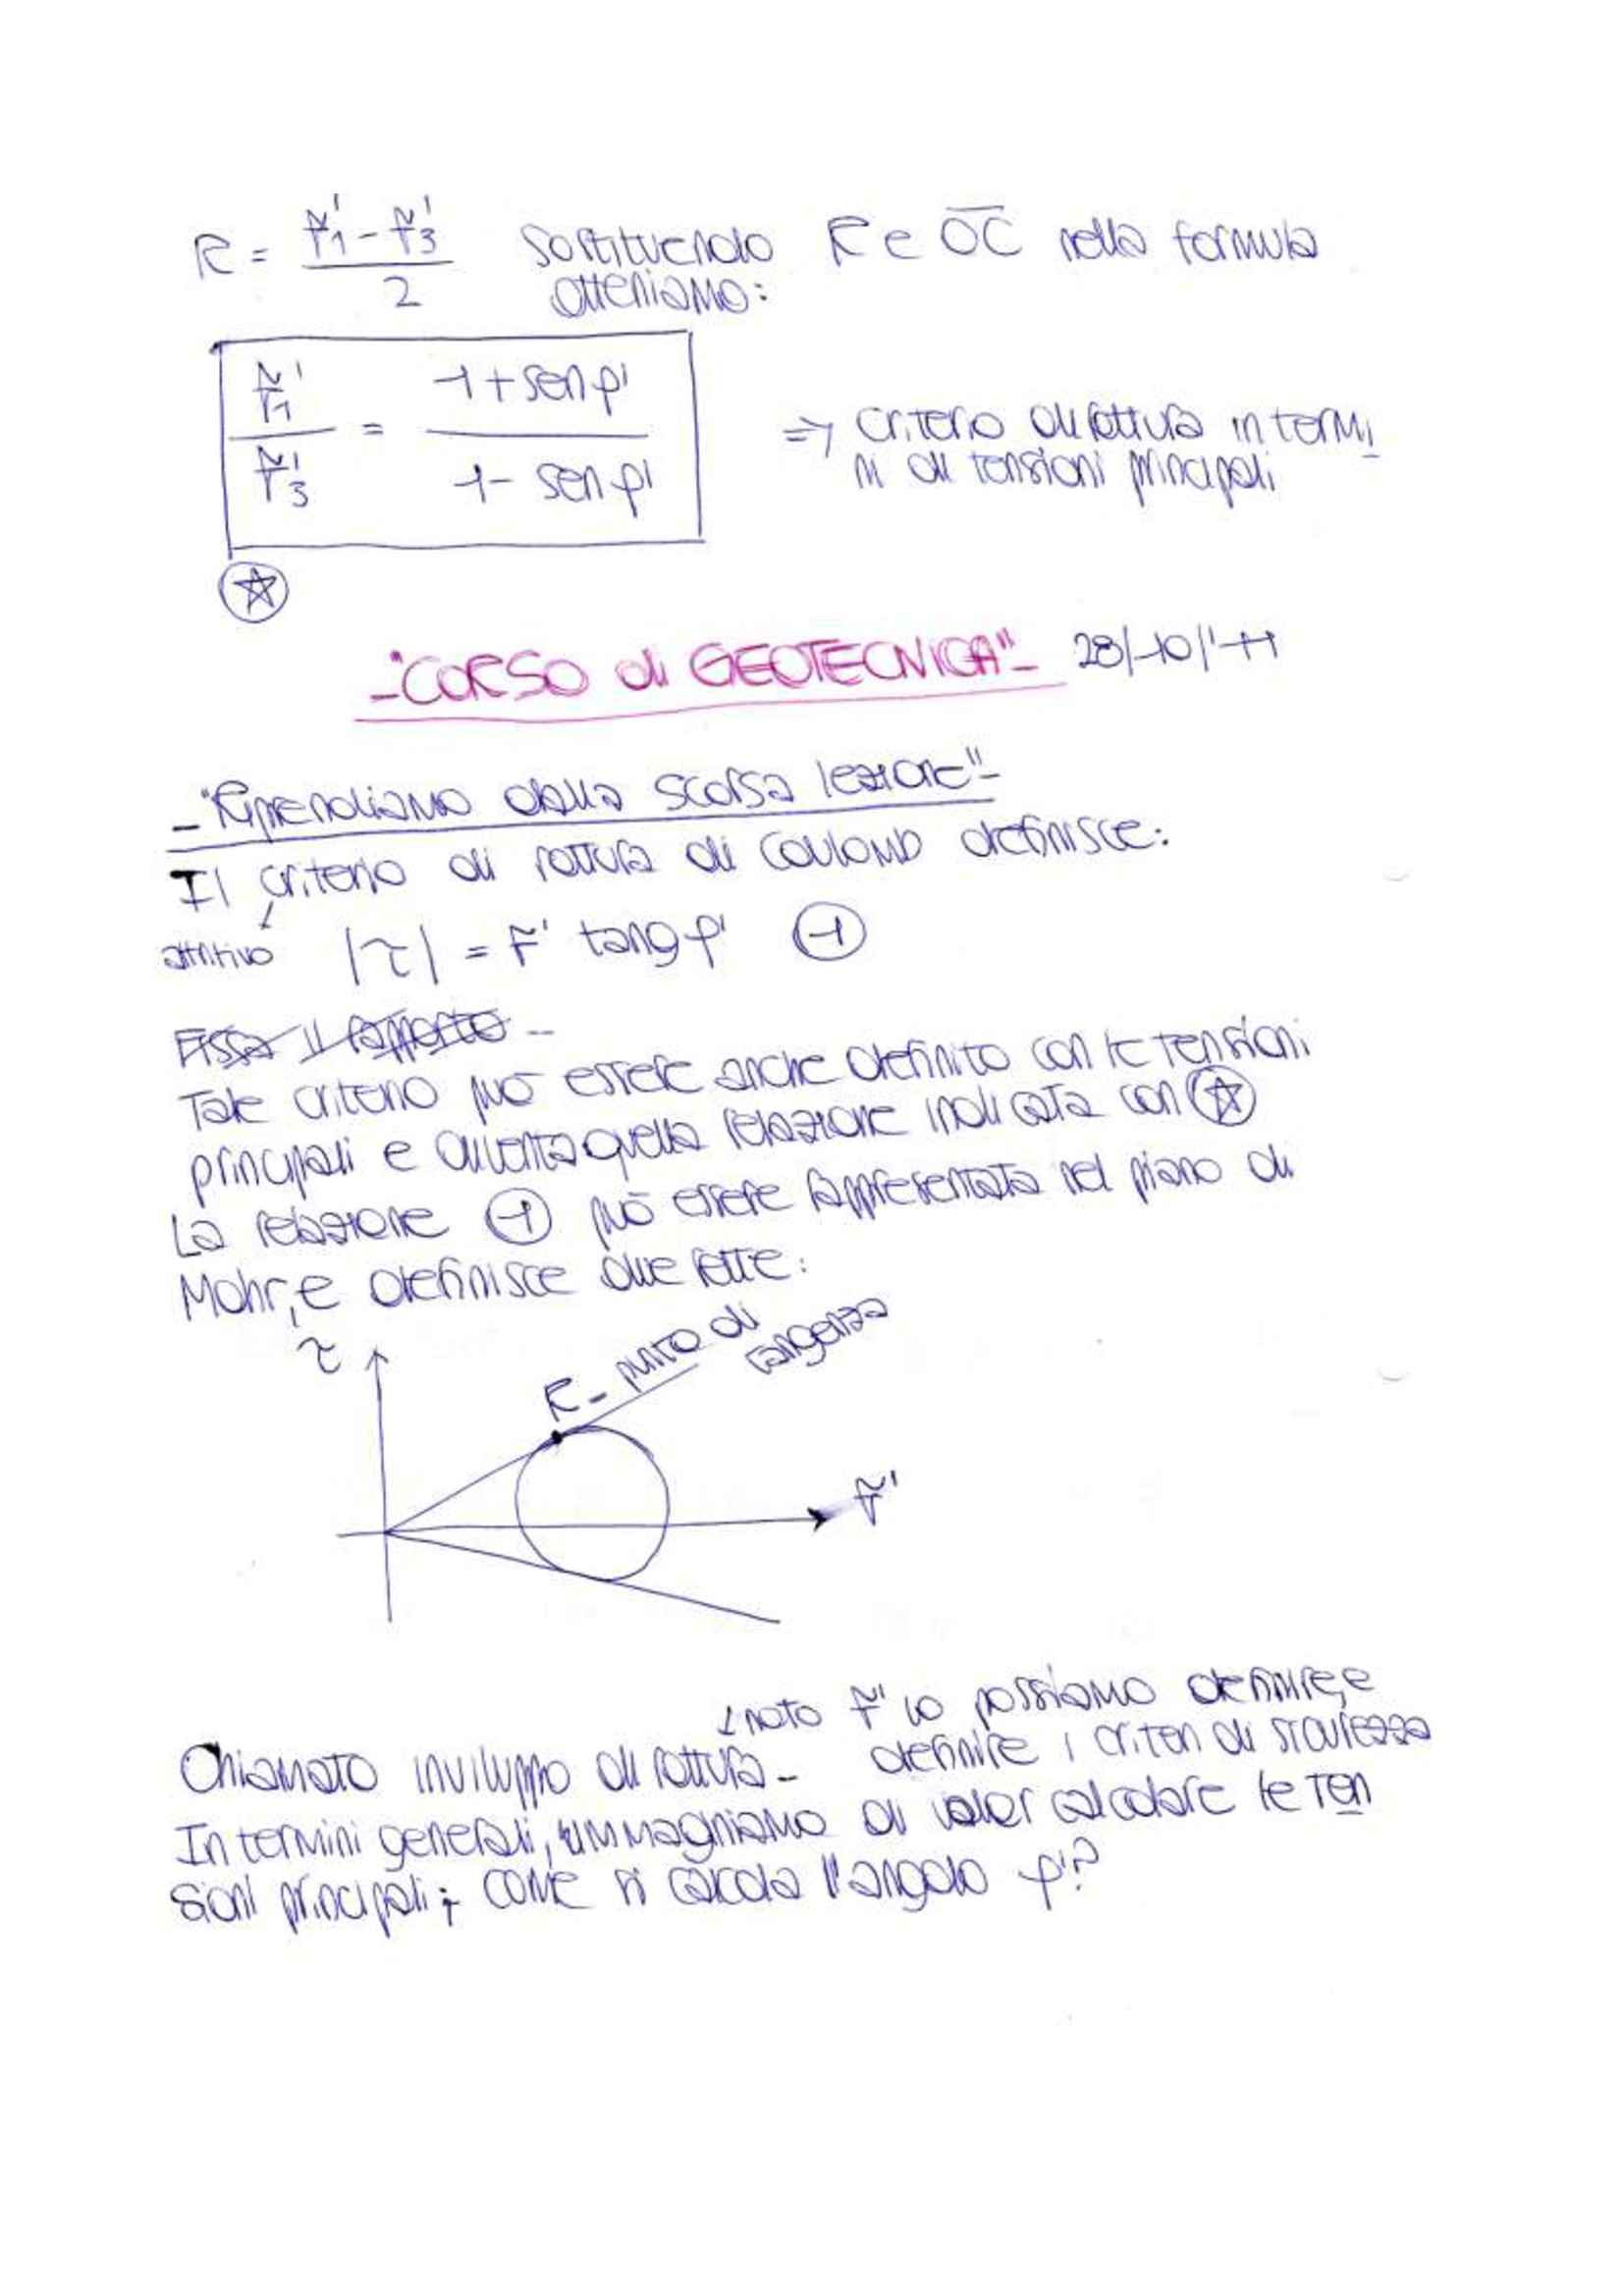 R = (σ'1 - σ'3)/2 Sostituendo R e O̅C̅ nella formula
otteniamo:
σ'1/σ'3 = (1 + sen φ')/(1 - sen φ') => criterio di rottura in termi
ni di tensioni principali
☆
-"CORSO di GEOTECNICA"- 28/10/'11
-"Riprendiamo dalla scorsa lezione"-
Il criterio di rottura di Coulomb definisce:
attritivo |τ| = σ' tang φ' ①
Fissa il rapporto -
Tale criterio può essere anche definito con le tensioni
principali e diventa quella relazione indicata con ☆
La relazione ① può essere rappresentata nel piano di
Mohr, e definisce due rette:
τ
R - punto di
tangenza
σ'
↓ noto σ' lo possiamo definire, e
Chiamato inviluppo di rottura - definire i criteri di sicurezza
In termini generali, immagniamo di voler calcolare le ten
sioni principali; come si calcola l'angolo φ'?